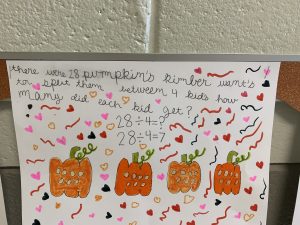 there were 28 pumpkin's kimber want's
to split them between 4 kids how
many did each kid get?
28÷4=?
28÷4=7